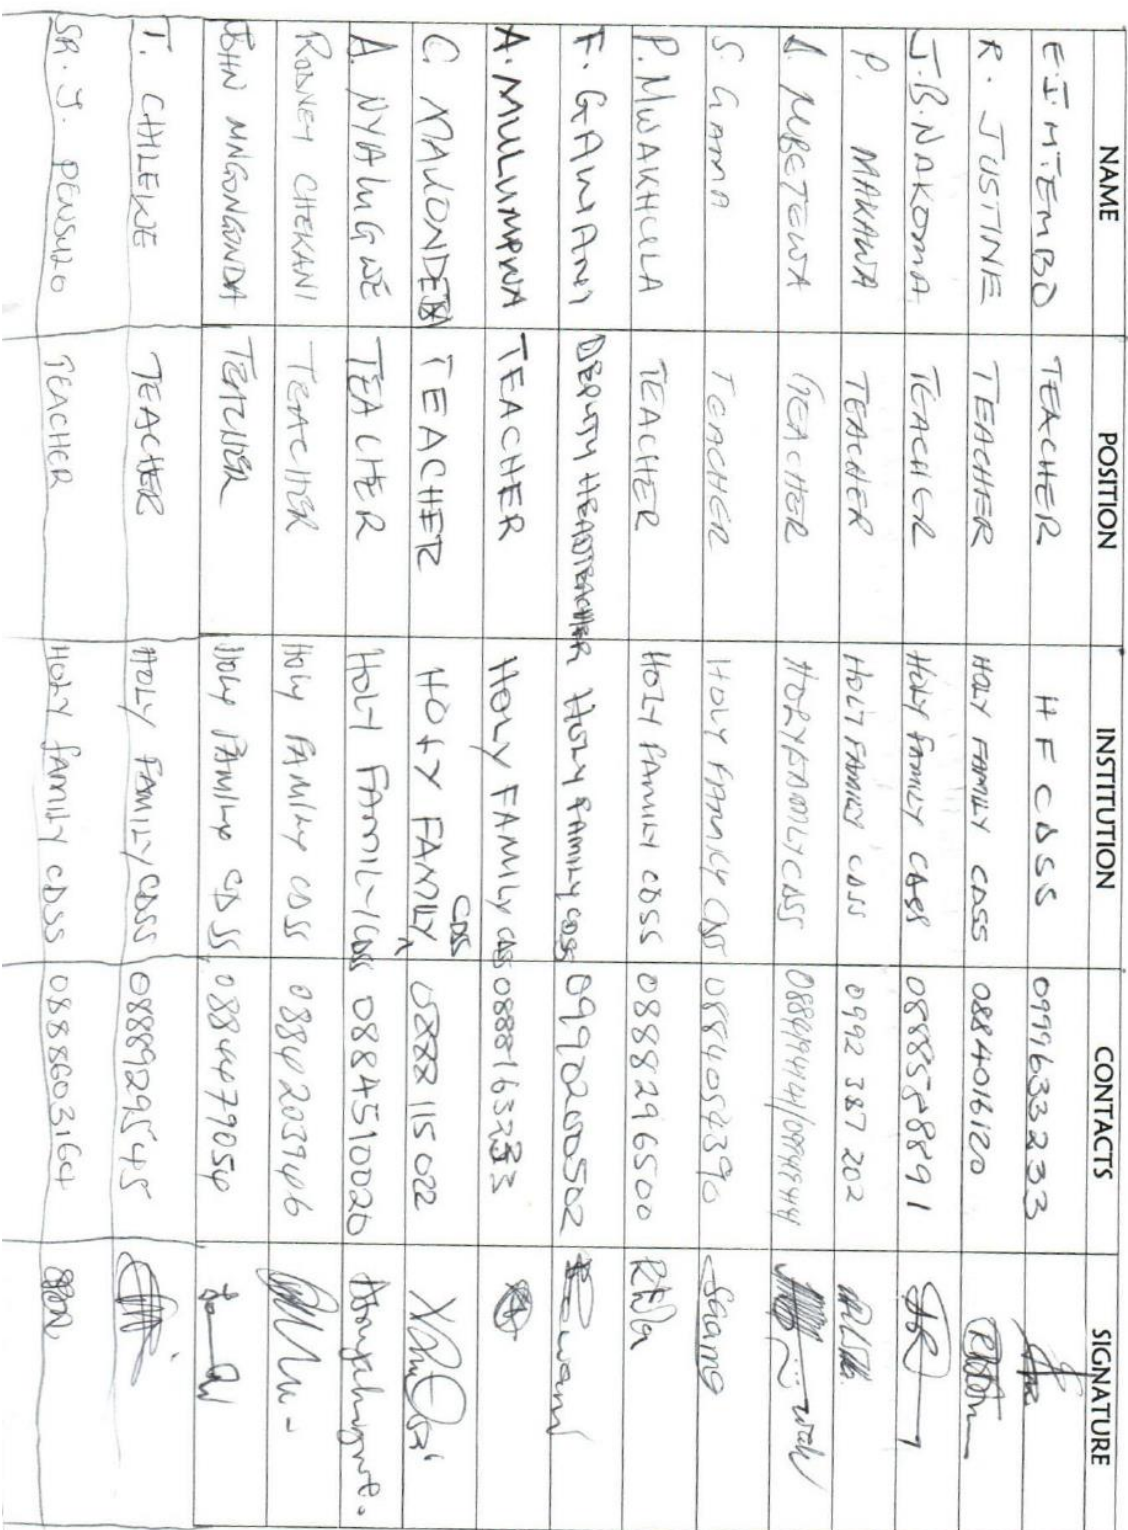 NAME POSITION INSTITUTION CONTACTS SIGNATURE
E.J. MTEMBO TEACHER H F CDSS 0999633233
R. JUSTINE TEACHER HOLY FAMILY CDSS 0884016120
J.B. NAKOMA TEACHER HOLY FAMILY CDSS 0888588891
P. MAKAWA TEACHER HOLY FAMILY CDSS 0992 387 202
TEACHER HOLY FAMILY CDSS
S. GAMA TEACHER HOLY FAMILY CDSS 0884054390
P. MWAKHULA TEACHER HOLY FAMILY CDSS 0888296500
F. GAWANI DEPUTY HEADTEACHER HOLY FAMILY CDSS 0997020502
A. MULUMPWA TEACHER HOLY FAMILY CDSS
C. TEACHER HOLY FAMILY CDSS 0888 115 022
A. NYALUGWE TEACHER HOLY FAMILY CDSS 0884510020
RODNEY CHEKANI TEACHER HOLY FAMILY CDSS 0884203946
JOHN MNGONGONDA TEACHER HOLY FAMILY CDSS 0884479054
T. CHILEWE TEACHER HOLY FAMILY CDSS 0888929545
SR. J. TEACHER HOLY FAMILY CDSS 0888603164